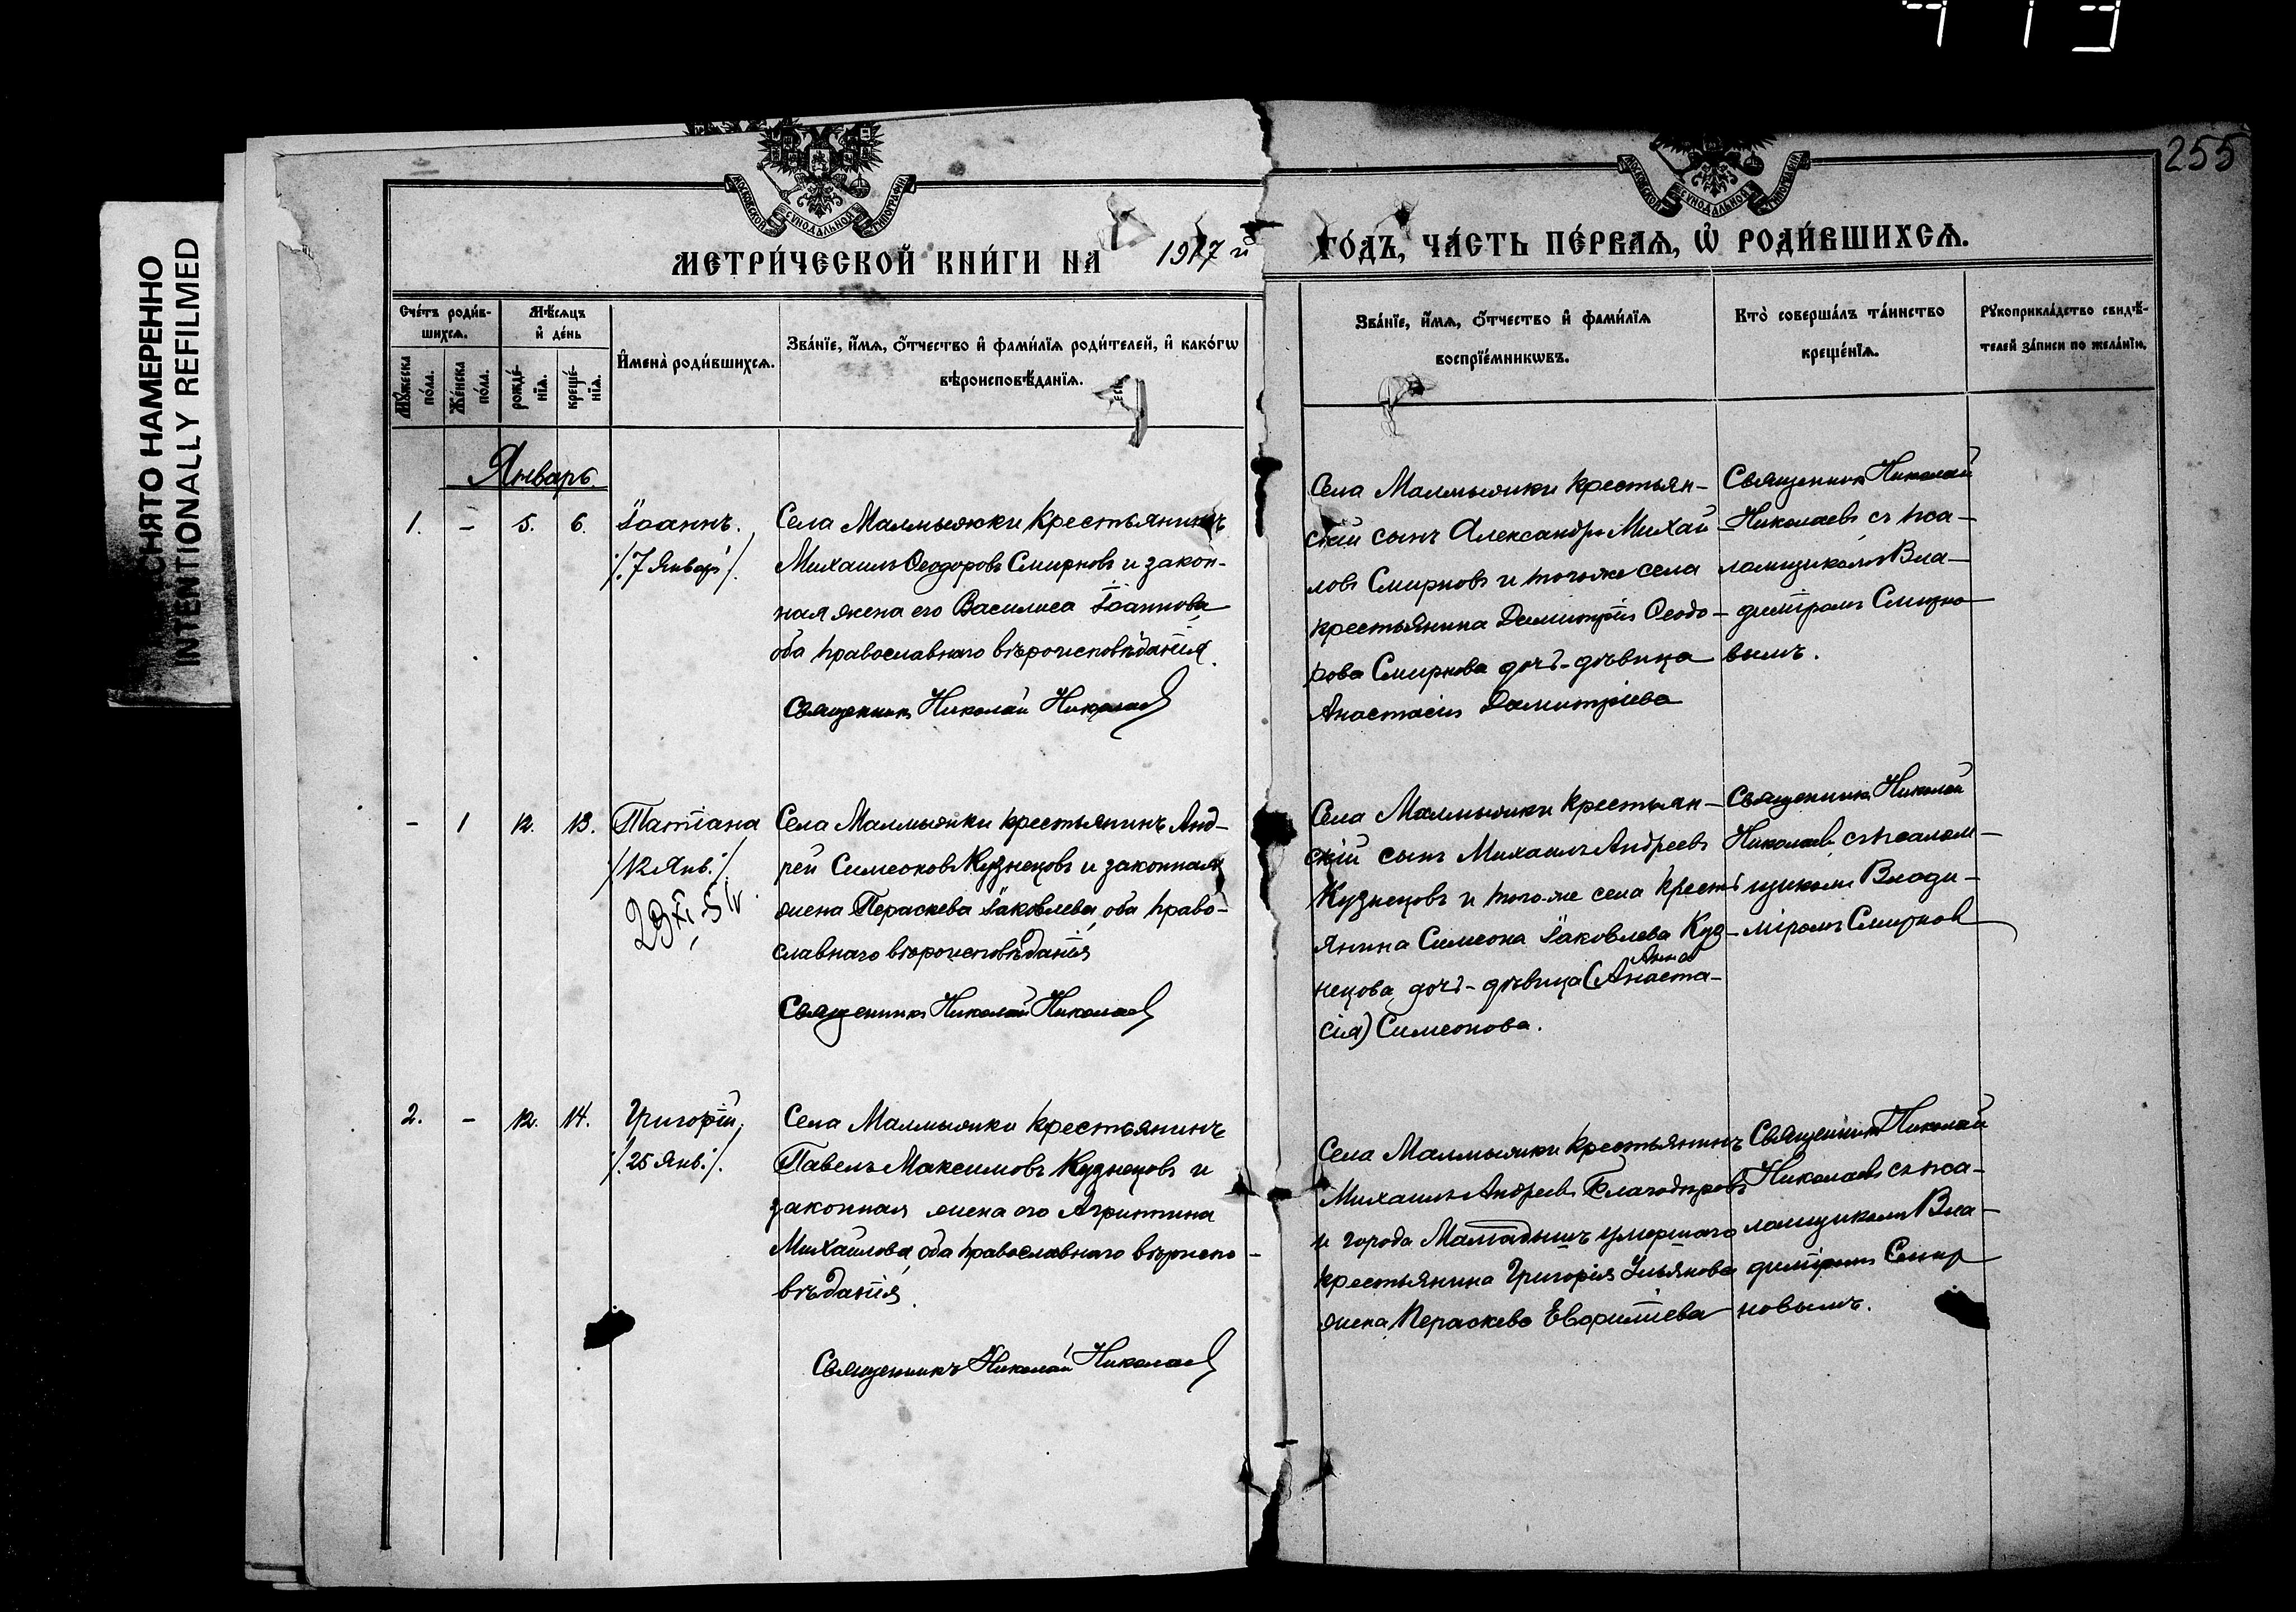 255
СНЯТО НАМЕРЕННО
INTENTIONALLY REFILMED
МОСКОВСКОЙ СѴНОДАЛЬНОЙ ТИПОГРАФІИ
МОСКОВСКОЙ СѴНОДАЛЬНОЙ ТИПОГРАФІИ
МЕТРИ́ЧЕСКОЙ КНИ́ГИ НА 1917 й ГО́ДЪ, ЧА́СТЬ ПЕ́РВАѦ, Ѡ҆ РОДИ́ВШИХСѦ.
Сче́тъ роди́в-
шихсѧ.
Мꙋ́жеска
по́ла.
Же́нска
по́ла.
Мѣ́сѧцъ
и҆ де́нь
рожде́-
нїѧ.
креще́-
нїѧ.
И҆мена̀ роди́вшихсѧ.
Зва́нїе, и҆́мѧ, ѻ҆́тчество и҆ фами́лїѧ роди́телей, и҆ како́гѡ
вѣроисповѣ́данїѧ.
Зва́нїе, и҆́мѧ, ѻ҆́тчество и҆ фами́лїѧ
воспрїе́мникѡвъ.
Кто̀ соверша́лъ та́инство
креще́нїѧ.
Рꙋкоприкла́дство свидѣ́-
телей за́писи по жела́нїю.
Январь.
1. - 5. 6. Іоаннъ.
/7 Январ./.
Села Малмыжки крестьянинъ
Михаилъ Ѳеодоровъ Смирновъ и закон-
ная жена его Василиса Іоаннова
оба православнаго вѣроисповѣданія.
Священникъ Николай Николаев
Села Малмыжки крестьян-
скій сынъ Александръ Михай
ловъ Смирновъ и того-же села
крестьянина Димитрія Ѳеодо-
рова Смирнова дочь-дѣвица
Анастасія Димитріева
Священникъ Николай
Николаевъ съ пса-
ломщикомъ Вла-
диміромъ Смирно
вымъ.
- 1 12. 13. Татіана
/12 Янв./.
Села Малмыжки крестьянинъ Анд-
рей Симеоновъ Кузнецовъ и законная
жена Параскева Іаковлева, оба право-
славнаго вѣроисповѣданія
Священникъ Николай Николаев
Села Малмыжки крестьян-
скій сынъ Михаилъ Андреевъ
Кузнецовъ и того-же села крестЬ
янина Симеона Іаковлева Куз-
нецова дочь-дѣвица (Анаста-
Анна
сія) Симеонова.
Священникъ Николай
Николаевъ съ псалом-
щикомъ Влади-
міромъ Смирнов
2. - 12. 14. Григорій,
/.25 Янв./.
Села Малмыжки крестьянинъ
Павелъ Максимовъ Кузнецовъ и
законная жена его Агриппина
Михаилова, оба православнаго вѣроиспо-
вѣданія.
Священникъ Николай Николаев
Села Малмыжки крестьянинъ
Михаилъ Андреевъ
и города умершаго
крестьянина Григорія Ульянова
жена Параскева
Священникъ Николай
Николаевъ съ пса-
ломщикомъ Вла-
диміромъ Смир
новымъ.